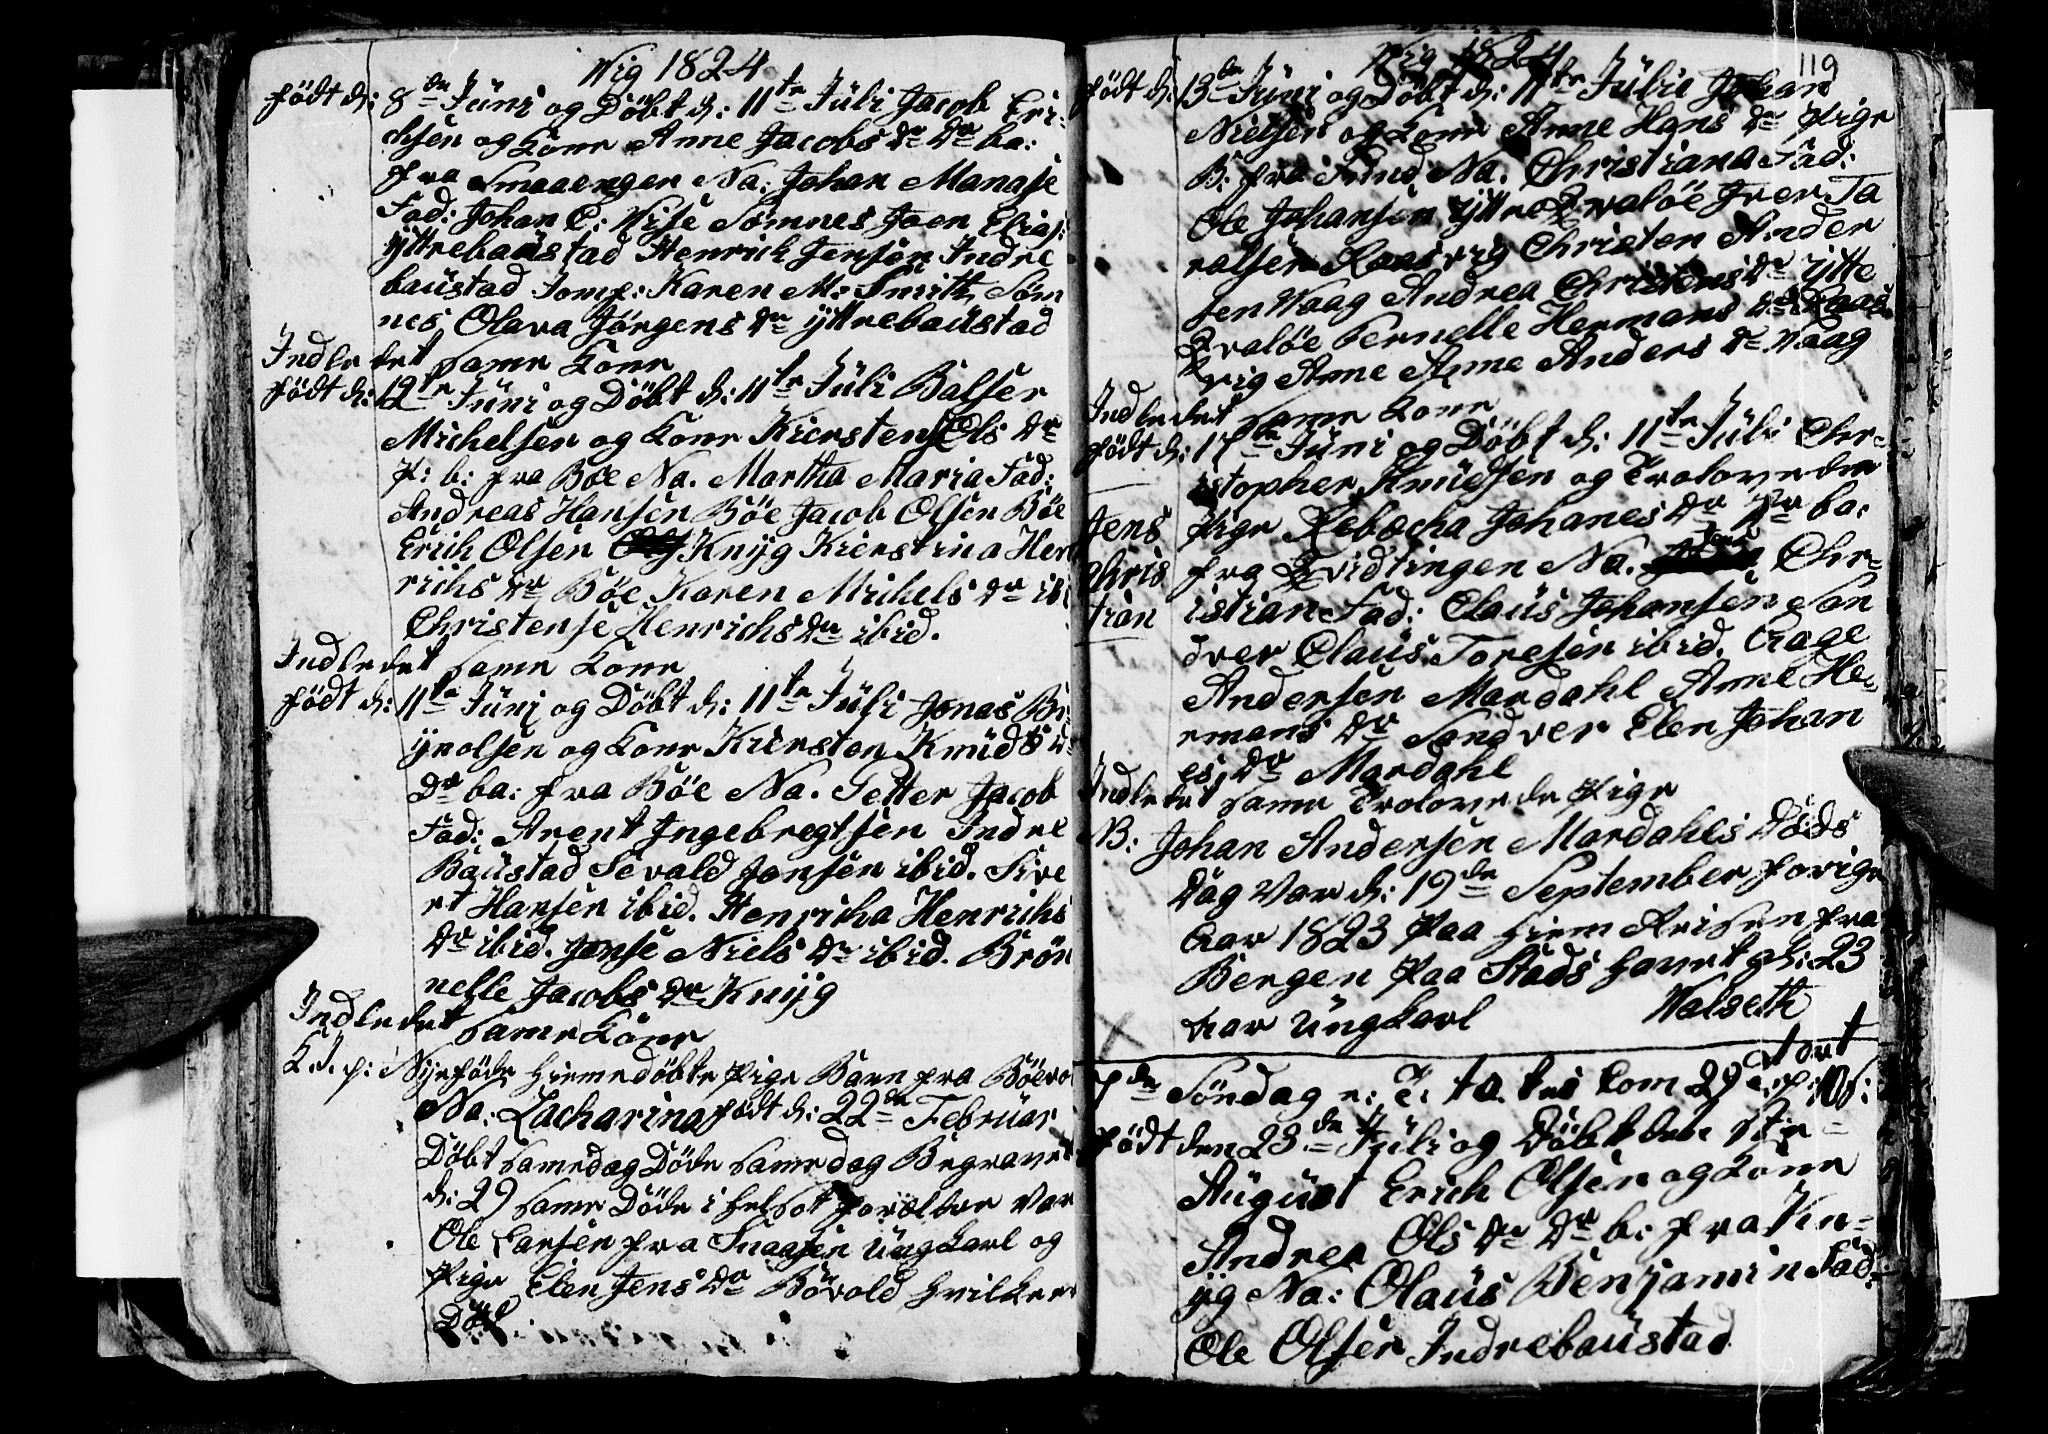 Wig 1824
født d: 8de Jüni og Döbt d: 11te Jüli Jacob Eri-
chsen og Kone Anne Jacobs Dr Dr ba:
fra Smaaengen Na: Johan Manase
Fad: Johan C: Wise Sømnes Joen Elias:
ÿttrebaüstad Henrich Jensen Indre
baüstad Jomf: Karen M: Smith Søm
nes Olava Jørgens Dr ÿttrebaüstad
Indledet same Kone
født d: 12te Jüni og Döbt d: 11te Jüli Balser
Michelsen og Kone Kiersten Ols Dr
p: b: fra Böe Na. Martha Maria Fad:
Andreas Hansen Böe Jacob Olsen Böe
Erich Olsen Knÿg Kierstina Hen
richs Dr Böe Karen Michels Dr ibi
Christense Henrichs Dr ibid.
Indledet same Kone
født d: 11te Jüni og Döbt d: 11te Jüli Jonas Br
ÿnolsen og Kone Kiersten Knüds D
Dr ba: fra Böe Na. Petter Jacob
Fad: Arent Ingebregtsen Indre
Baüstad Sevald Jonsen ibid. Sive
rt Hansen ibid. Henricha Henrichs
Dr ibid. Jense Niels Dr ibid. Brön
nelle Jacobs Dr Knÿg
Indledet same Kone
K. J. p: Nÿefödde Hiemedöbte Pige Barn fra Böevo
Na: Zacharina født d: 22de Februar
Döbt same dag Döde same dag Begravet
d: 29 same Döde i helsot forældre var
Ole Larsen fra Snaasen üngkarl og
Pige Elen Jens Dr Bövold hvilken
Död
119
Wig 1824
født d: 13de Jüni og Döbt d: 11te Jülii Johan
Nielsen og Kone Anne Hans Dr Pige
B: fra Fund Na. Christiana Fad:
Ole Johansen ÿttre Qvalöe Iver Ta
ralsen Raasvig Christen Ander
sen Waag Andrea Christens Dr ÿtte
Qvalöe Pernelle Hermans Dr Raas
vig Anne Anne Anders Dr Waag
Indledet same Kone
født d: 17de Jüni og Döbt d: 11te Jüli Chr-
istopher Knüdsen og Trolovede
Pige Rebecha Johanes Dr Dr ba:
Jens
Chris
tian
fra Qvidtingen Na. Jens Chr-
istian Fad: Claüs Johansen San
dver Claüs Toresen ibid. Aage
Andersen Mardahl Anne He-
rmans Dr Sandver Elen Johan
es Dr Mardahl
Indledet same Trolovede Pige
NB: Johan Andersen Mardahls Döds
Dag var d: 19de September forige
Aar 1823 Paa Hiem Reisen fra
Bergen Paa Stads Havet gl: 23
Aar üngkarl Walseth
7de Söndag e: T: ta tes kom 29
født den 23de Jüli og Döbt den 1te
August Erich Olsen og Kone
Andrea Ols Dr Dr b: fra Kn-
ÿg Na: Olaüs Benjamin Fad:
Ole Olsen Indrebaüstad